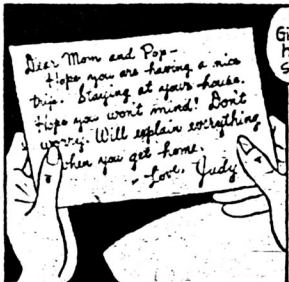 Dear Mom and Pop-
Hope you are having a nice
trip. Staying at your house.
Hope you won't mind! Don't
worry. Will explain everything
when you get home.
- Love, Judy